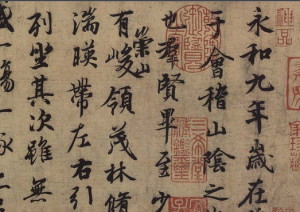 永和九年歲在
于會稽山陰之
也群賢畢至少
有崇山峻領茂林脩
湍暎帶左右引
列坐其次雖無
盛一觴一詠
神品